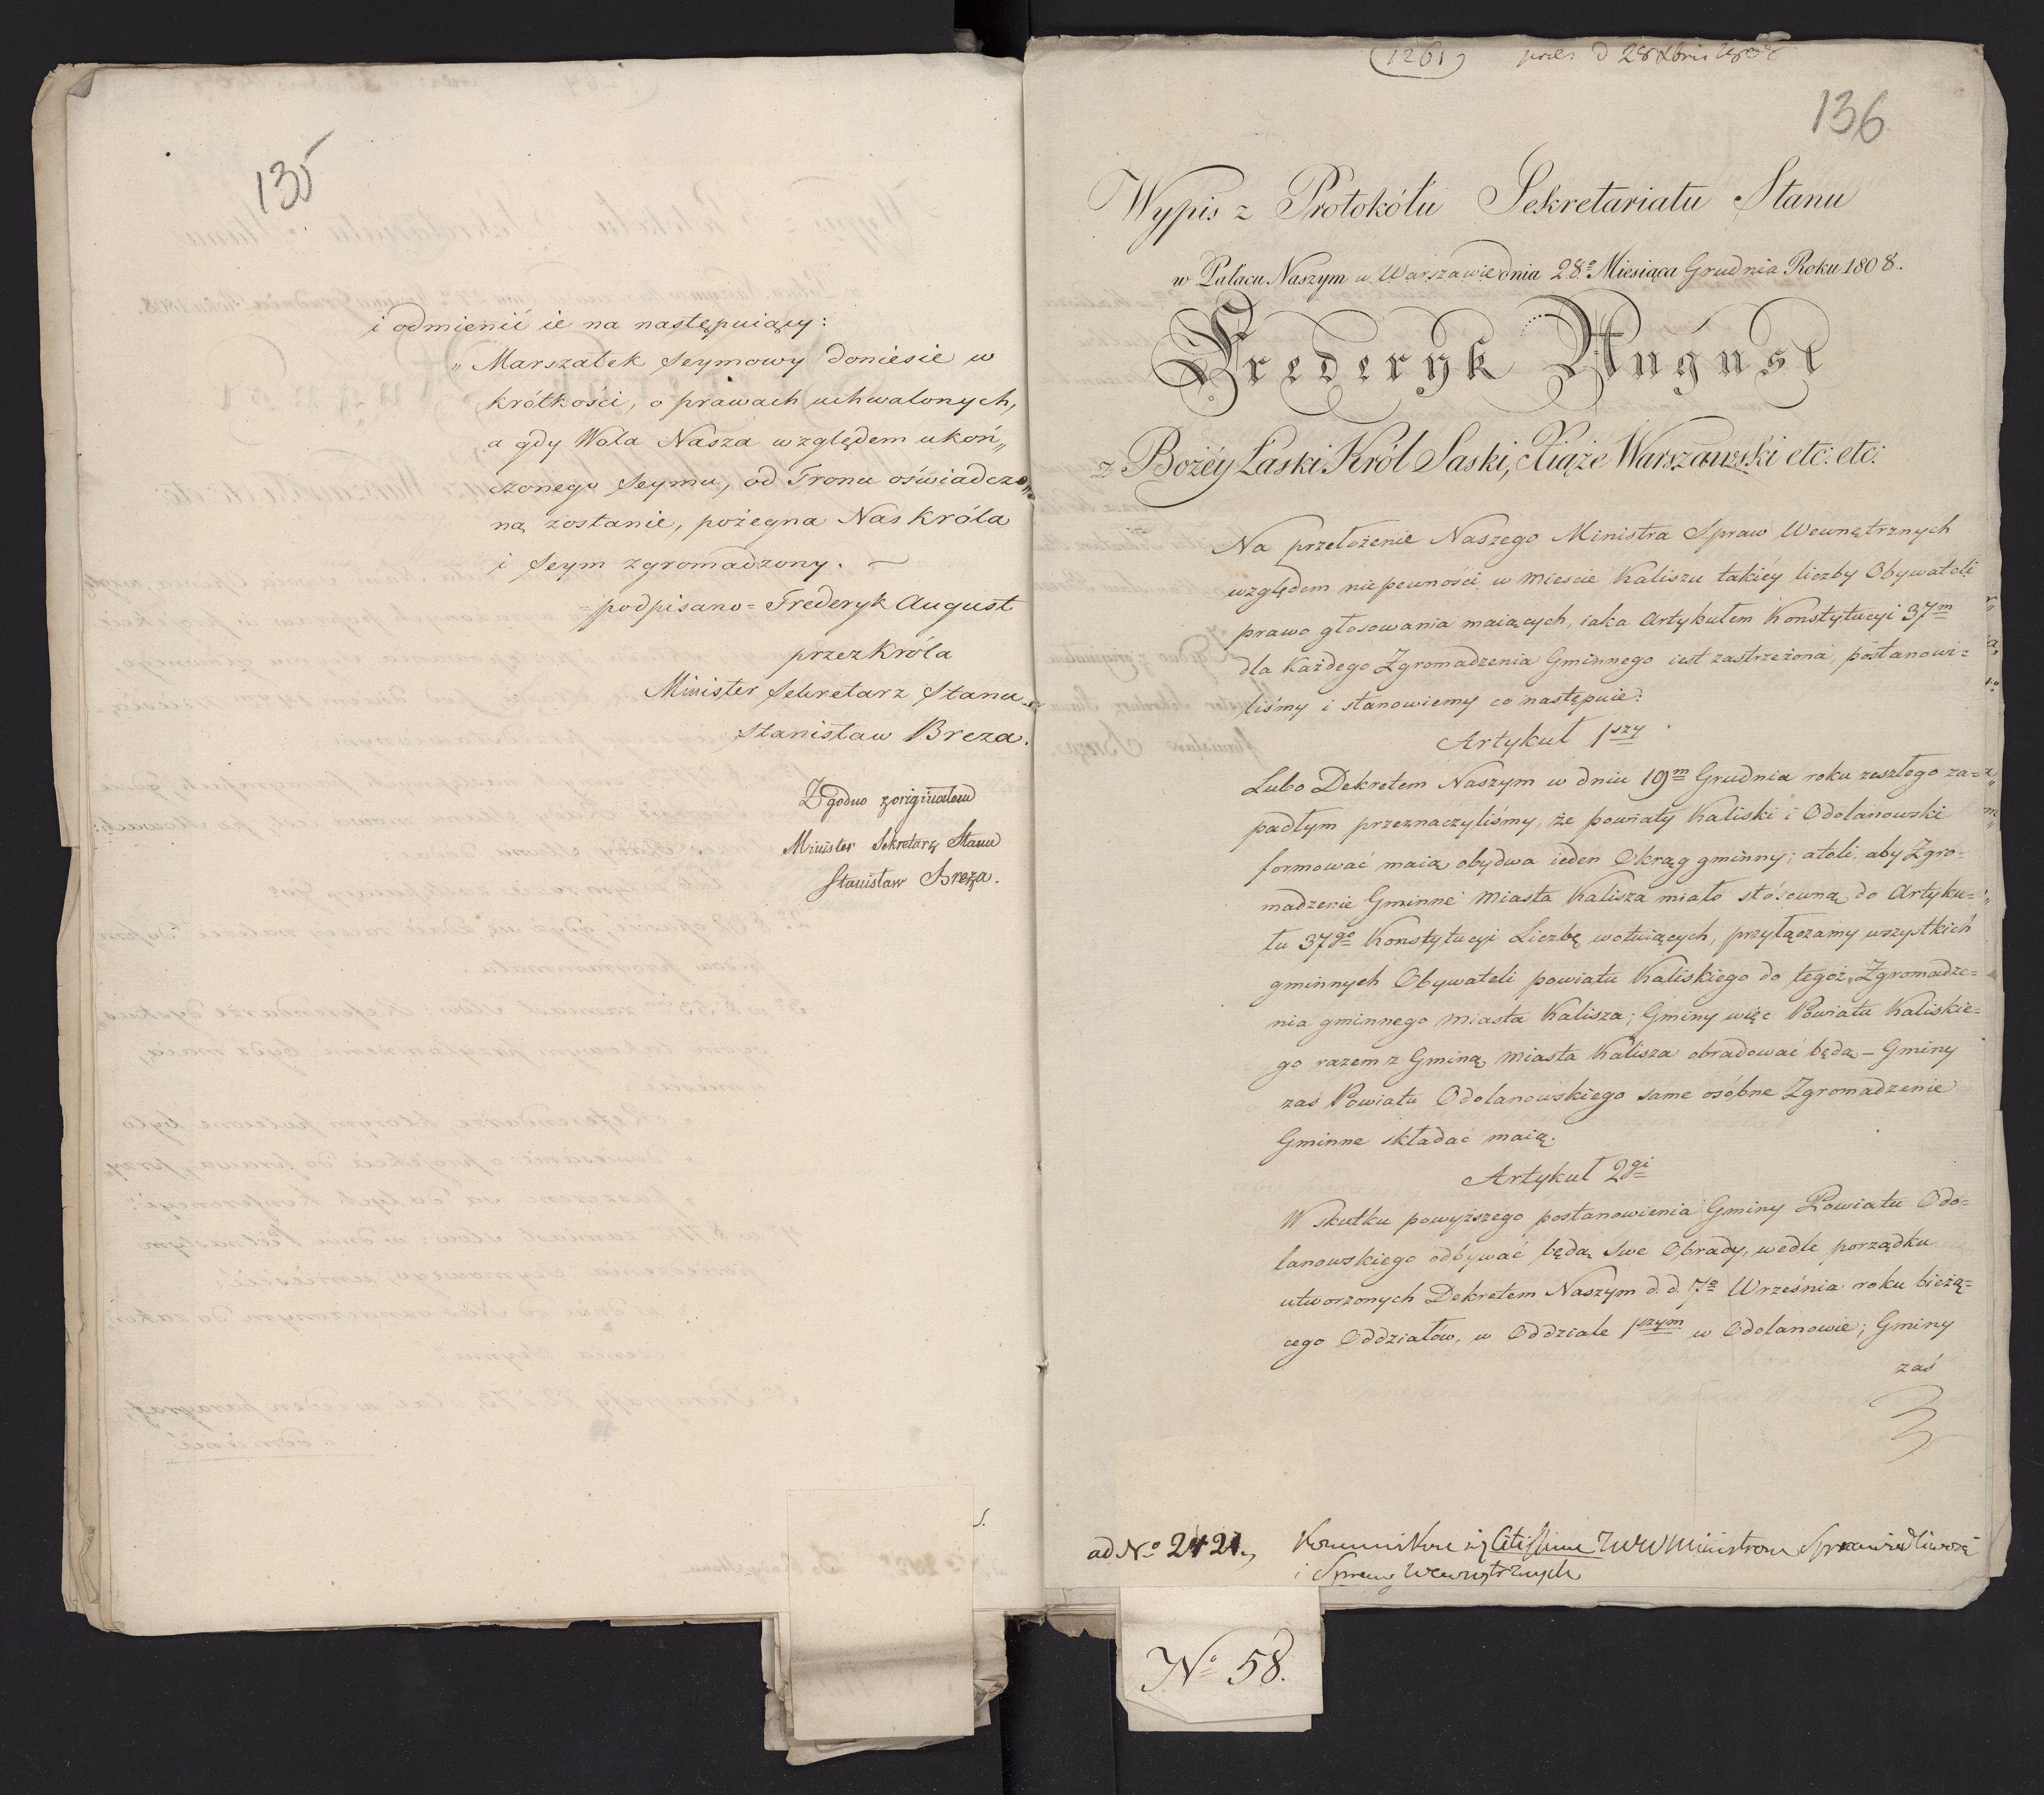 135
i odmienić ie na następuiący:
„ Marszałek Seymowy doniesie w
krótkości, o prawach uchwalonych,
a gdy Wola Nasza względem ukoń„
czonego Seymu, od Tronu oświadczo„
ną zostanie, pożegna Nas Króla
i Seym zgromadzony. —
= podpisano = Frederyk August
przez Króla
Minister Sekretarz Stanu
Stanisław Breza.
Zgodno z originałem
Minister Sekretarz Stanu
Stanisław Breza.
(1261) d 28 Xbris 1808
136
Wypis z Protokółu Sekretariatu Stanu
w Pałacu Naszym w Warszawie dnia 28.º Miesiąca Grudnia Roku 1808.
Frederyk August
z Bożéy Łaski Król Saski, Xiąże Warszawski etc: etc:
Na przełożenie Naszego Ministra Spraw Wewnętrznych
względem niepewności w mieście Kaliszu takiéy liczby Obywateli
prawo głosowania maiących, iaka Artykułem Konstytucyi 37m
dla każdego Zgromadzenia Gminnego iest zastrzeżona, postanowi=
liśmy i stanowiemy co następuie:
Artykuł 1szy
Lubo Dekretem Naszym w dniu 19m Grudnia roku zeszłego za=
padłym przeznaczyliśmy, że powiaty Kaliski i Odolanowski
formować maią obydwa ieden Okrąg gminny; atoli, aby Zgro=
madzenie Gminne Miasta Kalisza miało stósowną do Artyku=
łu 37go Konstytucyi Liczbę wotuiących, przyłączamy wszystkich
gminnych Obywateli powiatu Kaliskiego do tegoż Zgromadze=
nia gminnego miasta Kalisza; Gminy więc Powiatu Kaliskie=
go razem z Gminą miasta Kalisza obradować będą – Gminy
zaś Powiatu Odolanowskiego same osóbne Zgromadzenie
Gminne składać maią.
Artykuł 2gi
W skutku powyższego postanowienia Gminy Powiatu Odo=
lanowskiego odbywać będą swe Obrady, wedle porządku
utworzonych Dekretem Naszym d. d. 7º Września roku bieżą=
cego Oddziałów, w Oddziale 1szym w Odolanowie; Gminy
zaś
ad Nº 2421. citissime Ministrom Sprawiedliwości
i Spraw Wewnętrznych
Nº 58.